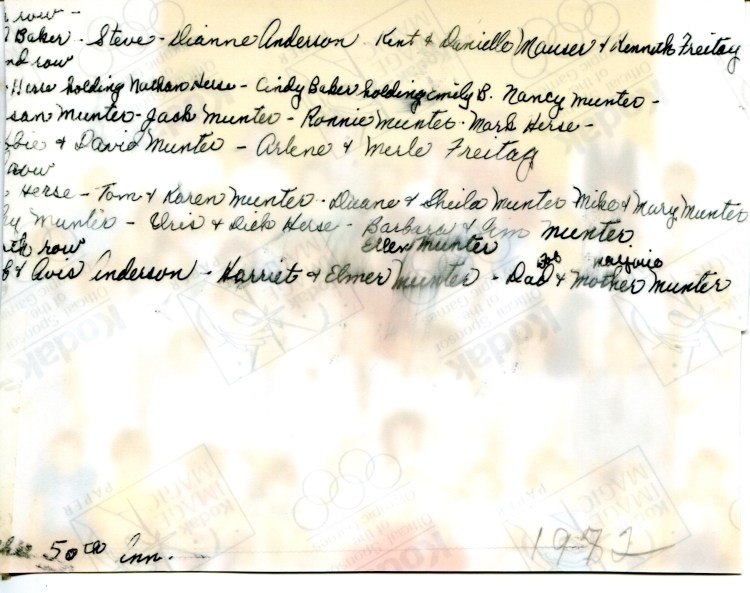 row -
Baker - Steve - Dianne Anderson Kent & Danielle Mauser & Kenneth Freitag
nd row
Herse holding Nathan Herse - Cindy Baker holding Emily B. Nancy Munter -
san Munter - Jack Munter - Ronnie Munter - Mark Herse -
bbie & David Munter - Arlene & Merle Freitag
row
Herse - Tom & Karen Munter - Duane & Sheila Munter Mike & Mary Munter
y Munter - Uris & Dick Herse - Barbara & Munter
Ellen Munter
th row
& Avis Anderson - Harriet & Elmer Munter - Dad & Mother Munter
marjorie
50th Ann.
1972
Kodak
Kodak
Kodak
PAPER
MAGIC
IMAGE